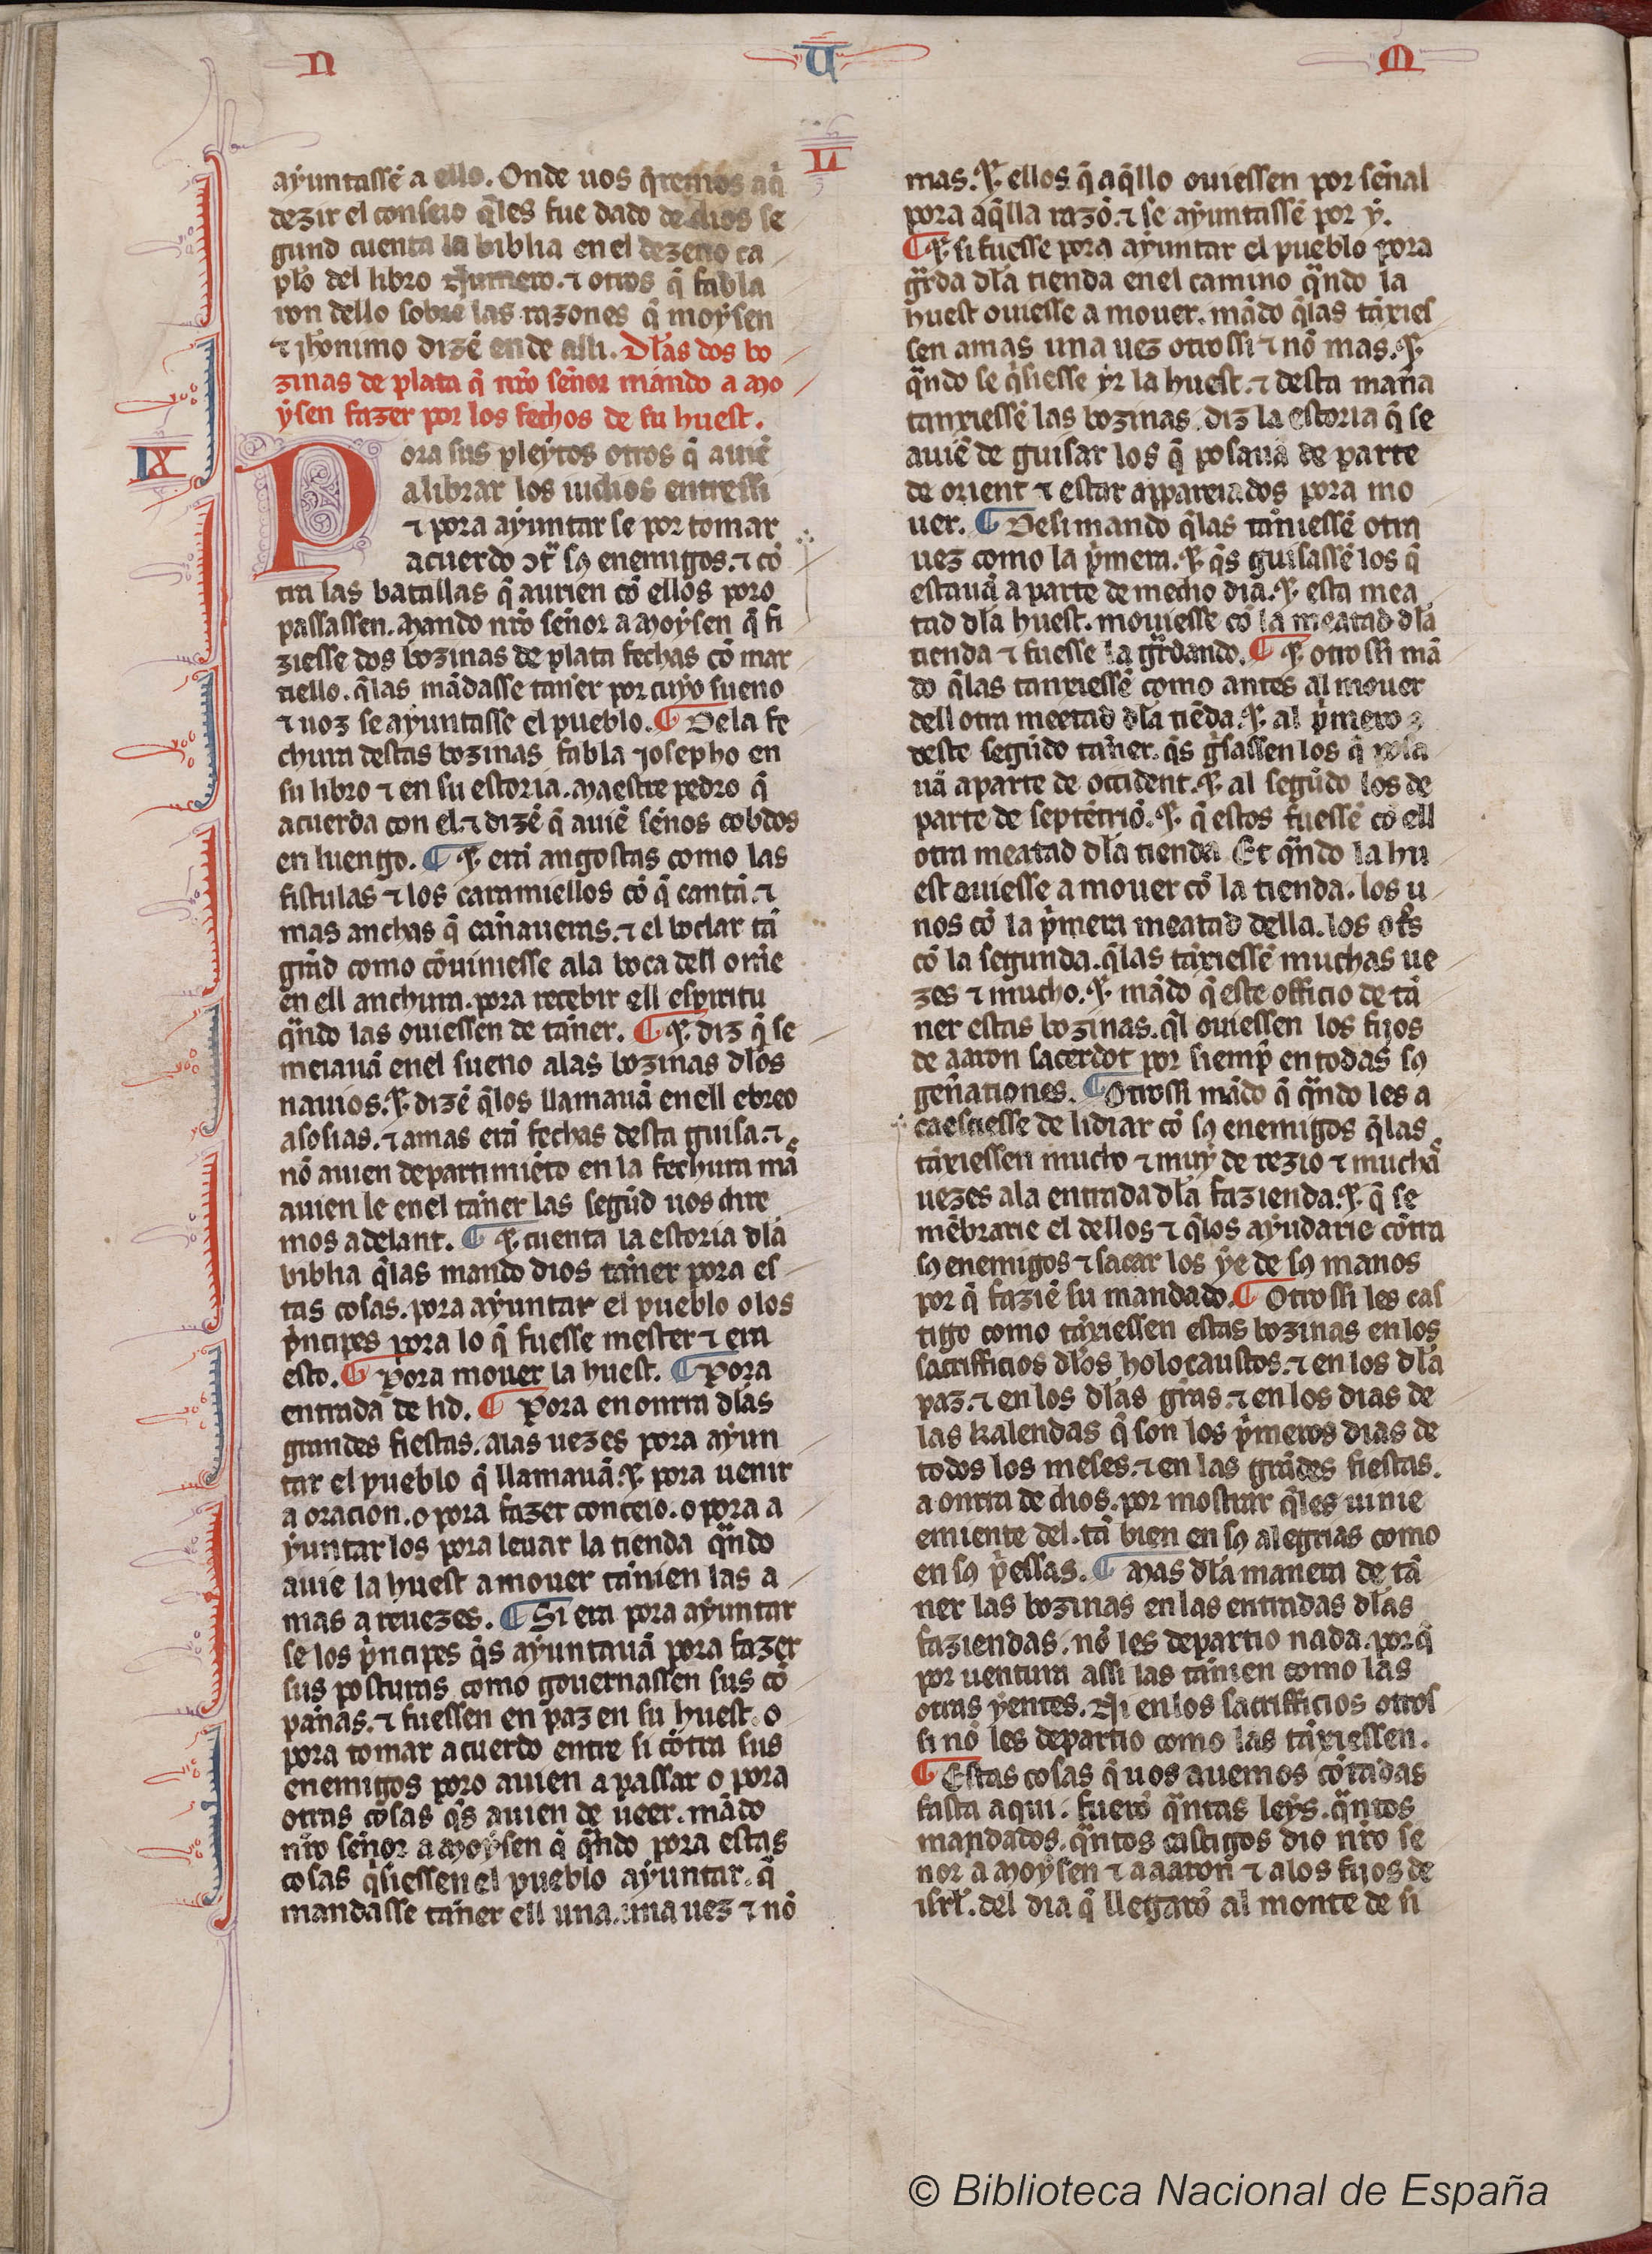 N U M
LI
ayuntassẽ a ello. Onde uos q̃remos aq̃
dezir el conseio q̃les fue dado de dios se
gund cuenta la biblia en el dezeno ca
pl̃o del libro Numero. ⁊ otros q̃ fabla
ron dello sobre las razones q̃ moysen
⁊ jh̃onimo dizẽ ende alli. Dl̃as dos bo
zinas de plata q̃ nr̃o sennor mando a mo
ysen fazer por los fechos de su huest.
IX
Pora sus pleytos otros q̃ auiẽ
a librar los iudios entressi
⁊ pora ayuntar se por tomar
acuerdo ↄtr̃ sꝯ enemigos. ⁊ cõ
tra las batallas q̃ aurien cõ ellos poro
passassen. Mando nr̃o señor a Moysen q̃ fi
ziesse dos bozinas de plata fechas cõ mar
tiello. q̃las mãdasse tañer por cuyo sueno
⁊ uoz se ayuntasse el pueblo. ¶ De la fe
chura destas bozinas fabla Josepho en
su libro ⁊ en su estoria. Maestre pedro q̃
acuerda con el. ⁊ dizẽ q̃ auiẽ seños cobdos
en luengo. ¶ ⁊ erã angostas como las
fistulas ⁊ los caramiellos cõ q̃ cantã. ⁊
mas anchas q̃ cañaueras. ⁊ el boclar tã
grãd como cõuiniesse a la boca dell om̃e
en ell anchura. pora recebir ell espiritu
q̃ndo las ouiessen de tañer. ¶ ⁊ diz q̃ se
meiauã en el sueno a las bozinas dl̃os
nauios. ⁊ dizẽ q̃los llamauã en ell ebreo
asosias. ⁊ amas erã fechas desta guisa. ⁊
nõ auien departimiẽto en la fechura mã
auien le en el tañer las segũd uos dire
mos adelant. ¶ ⁊ cuenta la estoria dl̃a
biblia q̃las mando dios tañer pora es
tas cosas. pora ayuntar el pueblo o los
p̃ncipes pora lo q̃ fuesse mester ⁊ era
esto. ¶ Pora mouer la huest. ¶ Pora
entrada de lid. ¶ Pora en onrra dl̃as
grandes fiestas. a las uezes pora ayun
tar el pueblo q̃ llamauã. ⁊ pora uenir
a oracion. o pora fazer conceio. o pora a
yuntar los pora leuar la tienda q̃ndo
auie la huest a mouer tañien las a
mas a reuezes. ¶ Si era pora ayuntar
se los p̃ncipes q̃s ayuntauã pora fazer
sus posturas como gouernassen sus cõ
pañas. ⁊ fuessen en paz en su huest. o
pora tomar acuerdo entre si cõtra sus
enemigos poro auien a passar o pora
otras cosas q̃s auien de ueer. mãdo
nr̃o señor a Moysen q̃ q̃ndo pora estas
cosas q̃siessen el pueblo ayuntar. q̃
mandasse tañer ell una. una uez ⁊ nõ
mas. ⁊ ellos q̃ aq̃llo ouiessen por señal
pora aq̃lla razõ. ⁊ se ayuntassẽ por y.
¶ ⁊ si fuesse pora ayuntar el pueblo pora
gr̃da dl̃a tienda en el camino q̃ndo la
huest ouiesse a mouer. mãdo q̃las tãxies
sen amas una uez otrossi ⁊ nõ mas. ⁊
q̃ndo se q̃siesse yr la huest. ⁊ desta mañra
tanxiessẽ las bozinas. diz la estoria q̃ se
auiẽ de guisar los q̃ posauã de parte
de orient ⁊ estar appareiados pora mo
uer. ¶ Desi mando q̃las tãniessẽ otra
uez como la p̃mera. ⁊ q̃s guisassẽ los q̃
estauã a parte de medio dia. ⁊ esta mea
tad dl̃a huest. mouiesse cõ la meatad dl̃a
tienda ⁊ fuesse la gr̃dando. ¶ ⁊ otrossi mã
do q̃las tanxiessẽ como antes al mouer
dell otra meetad dl̃a tiẽda. ⁊ al p̃mero
deste segũdo tañer. q̃s g̃sassen los q̃ posa
uã a parte de occident. ⁊ al segũdo los de
parte de septẽtriõ. ⁊ q̃ estos fuessẽ cõ ell
otra meatad dl̃a tienda Et q̃ndo la hu
est ouiesse a mouer cõ la tienda. los u
nos cõ la p̃mera meatad della. los ot̃s
cõ la segunda. q̃las tãxiessẽ muchas ue
zes ⁊ mucho. ⁊ mãdo q̃ este officio de tã
ner estas bozinas. q̃l ouiessen los fijos
de aaron sacerdot por siemp̃ en todas sꝯ
geñationes. ¶ Otrossi mãdo q̃ q̃ndo les a
caesciesse de lidiar cõ sꝯ enemigos q̃las
tãxiessen mucho ⁊ muy de rezio ⁊ muchã
uezes a la entrada dl̃a fazienda. ⁊ q̃ se
mẽbrarie el dellos ⁊ q̃los ayudarie cõtra
sꝯ enemigos ⁊ sacar los ye de sꝯ manos
por q̃ faziẽ su mandado. ¶ Otrossi les cas
tigo como tãxiessen estas bozinas en los
sacrifficios dl̃os holocaustos. ⁊ en los dl̃a
paz. ⁊ en los dl̃as gr̃as. ⁊ en los dias de
las kalendas q̃ son los p̃meros dias de
todos los meses. ⁊ en las grãdes fiestas.
a onrra de dios. por mostrar q̃les uinie
emiente del. tã bien en sꝯ alegrias como
en sꝯ p̃essas. ¶ Mas dl̃a manera de tã
ner las bozinas en las entradas dl̃as
faziendas. nõ les departio nada. porq̃
por uentura assi las tãnien como las
otras yentes. Ni en los sacrifficios otros
si nõ les departio como las tãxiessen.
¶ Estas cosas q̃ uos auemos cõtadas
fasta aqui. fuerõ q̃ntas leys. q̃ntos
mandados. q̃ntos castigos dio nr̃o se
nor a Moysen ⁊ a aaron ⁊ a los fijos de
isrl̃. del dia q̃ llegarõ al monte de si
© Biblioteca Nacional de España